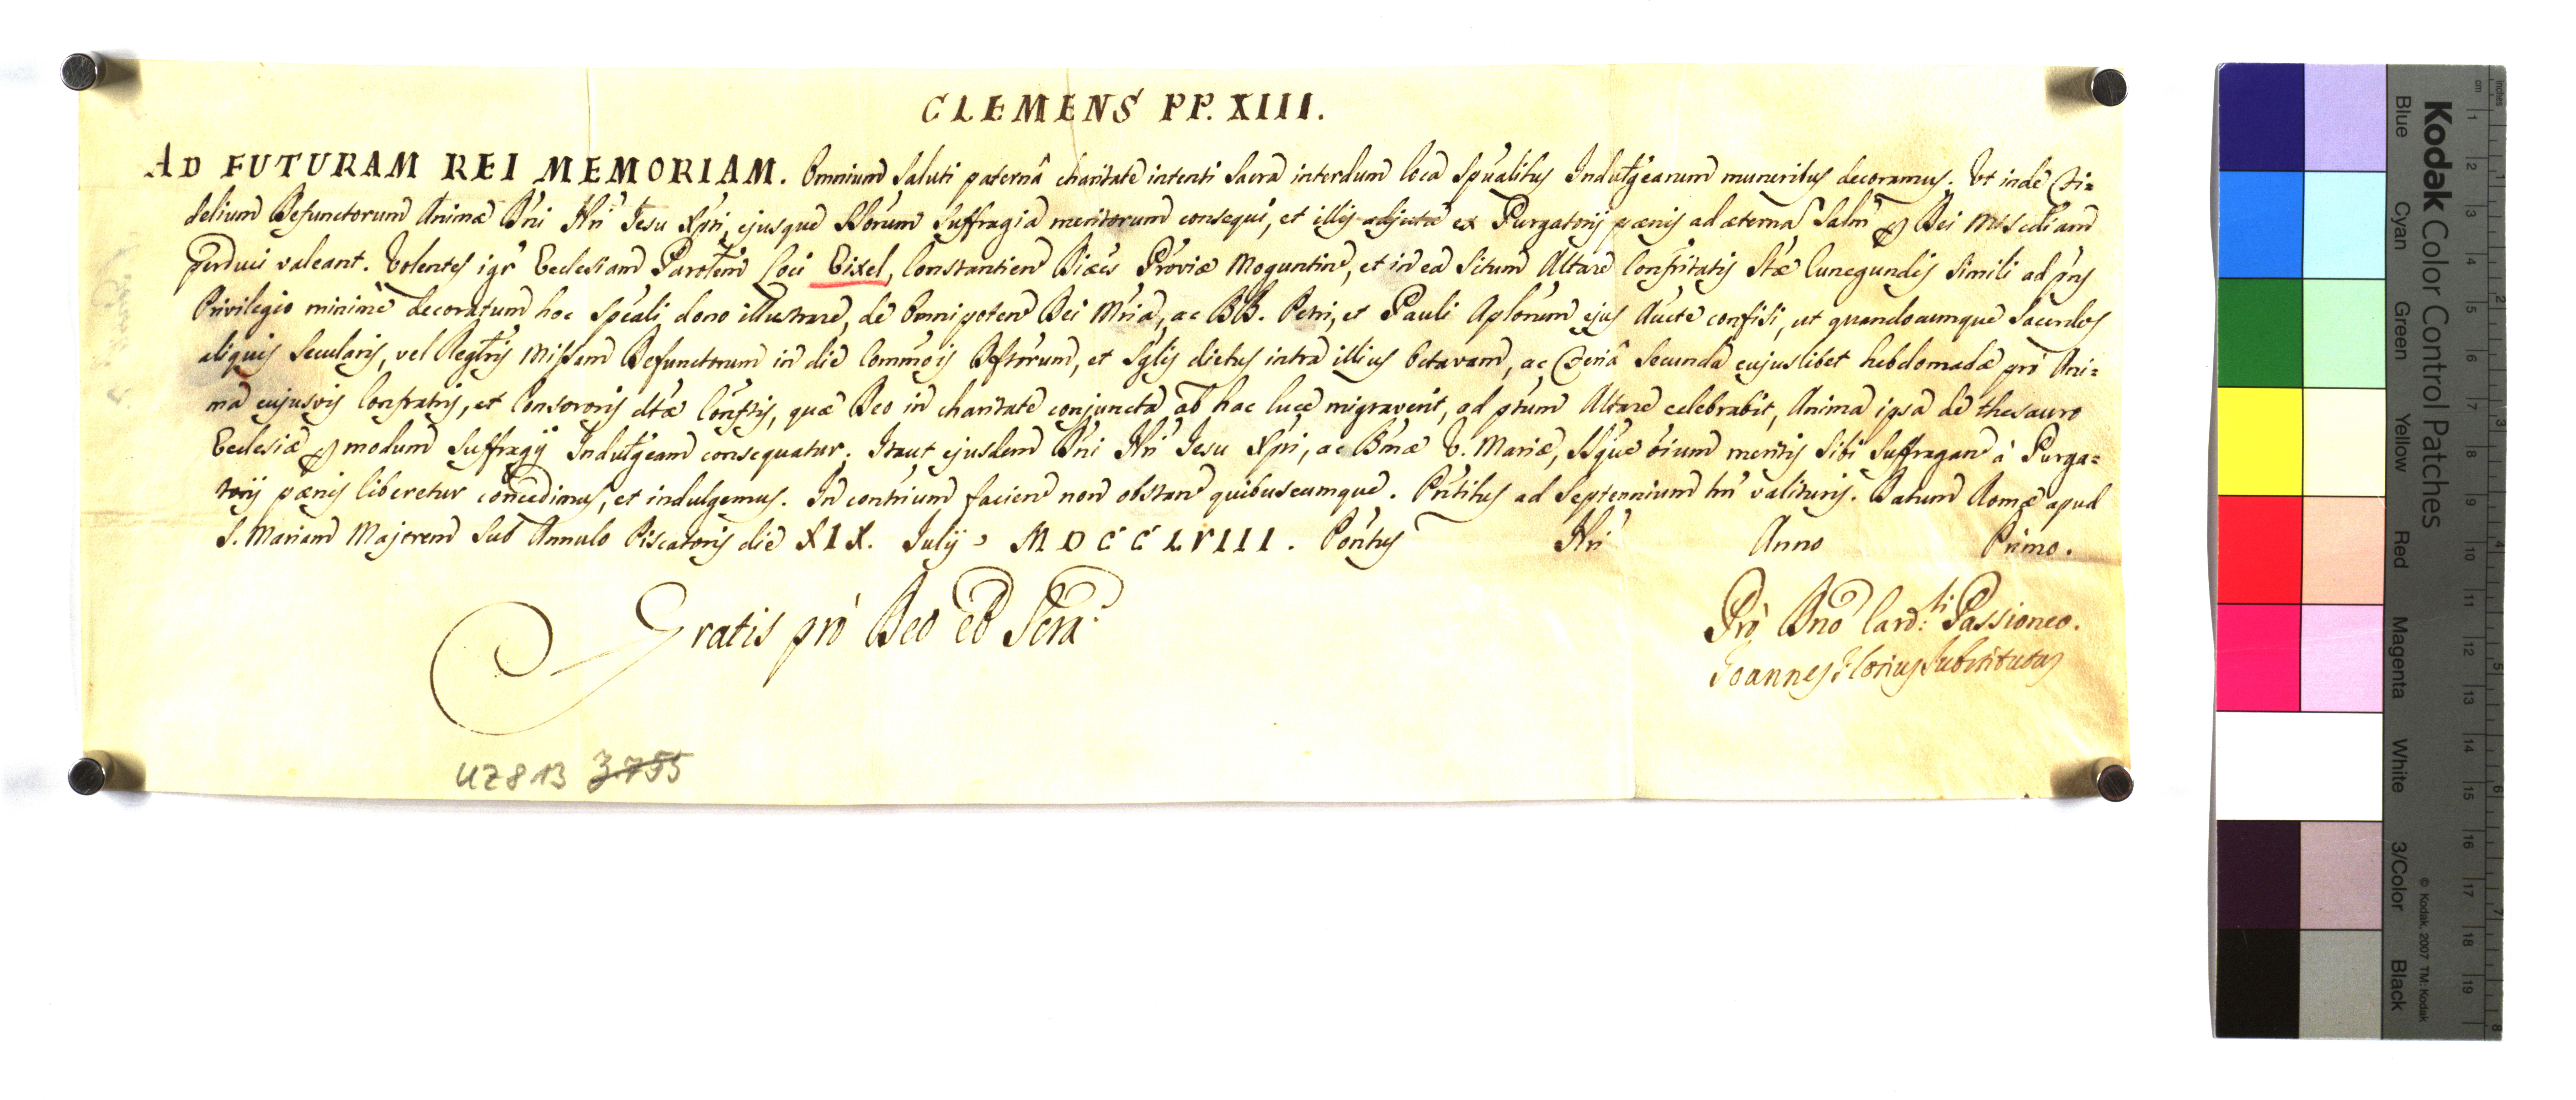 CLEMENS PP. XIII.
AD FUTURAM REI MEMORIAM. Omnium saluti paternâ charitate intenti sacra interdum loca spũalibus Indulg̃earum muneribus decoramus. Ut inde Fi=
delium Defunctorum Animæ Dñi Ñri Jesu Xp̃ri, ejusque SSorum suffragia meritorum consequi, et illis adjutæ ex Purgatorij pœnis ad æternã Salm̃ Dei Misc̃diam
perduci valeant. Volentes igr̃ Ecclesiam Paroc̃lem Loci Eixel, Constantien Diæc̃s Prov̅iæ Moguntin, et in ea situm Altare Confrĩtatis Stæ Cunegundis simili ad p̃ns
Privilegio minimè decoratum hoc sp̃eali dono illustrare, de Omnipoten Dei M̃ria, ac BB. Petri, et Pauli Ap̃lorum ejus Aucte confisi, ut quandocumque Sacerdos
aliquis Secularis, vel Reg̃ris Missam Defunctorum in die Com̃ois Def̃torum, et sg̃lis diebus intra illius Octavam, ac Feriâ secunda cujuslibet hebdomadæ pro Ani=
ma cujusvis Confratris, et Consororis dtæ Conf̃tis, quæ Deo in charitate conjuncta ab hac luce migraverit, ad p̃tum Altare celebrabit, Anima ipsa de thesauro
Ecclesiæ modum suffragij Indulg̃eam consequatur. Itaut ejusdem Dñi Ñri Jesu Xp̃ri, ac Bm̃æ V. Mariæ, SSque oium meritis sibi suffragan à Purga=
torij pœnis liberetur concedimus, et indulgemus. In cont̃rium facien non obstan quibuscumque. Pñtibus ad Septennium tñ valituris. Datum Romæ apud
S. Mariam Majorem sub Annulo Piscatoris die XIX. Julij MDCCLVIII. Pont̃us Ñri Anno Primo.
Gratis pro Deo et Scra
Pro Dno Card.li Passioneo.
Joannes Florius Substitutus
UZ 813 3755
Kodak Color Control Patches
Blue Cyan Green Yellow Red Magenta White 3/Color Black
© Kodak, 2007 TM: Kodak
cm 1 2 3 4 5 6 7 8 9 10 11 12 13 14 15 16 17 18 19
inches 1 2 3 4 5 6 7 8